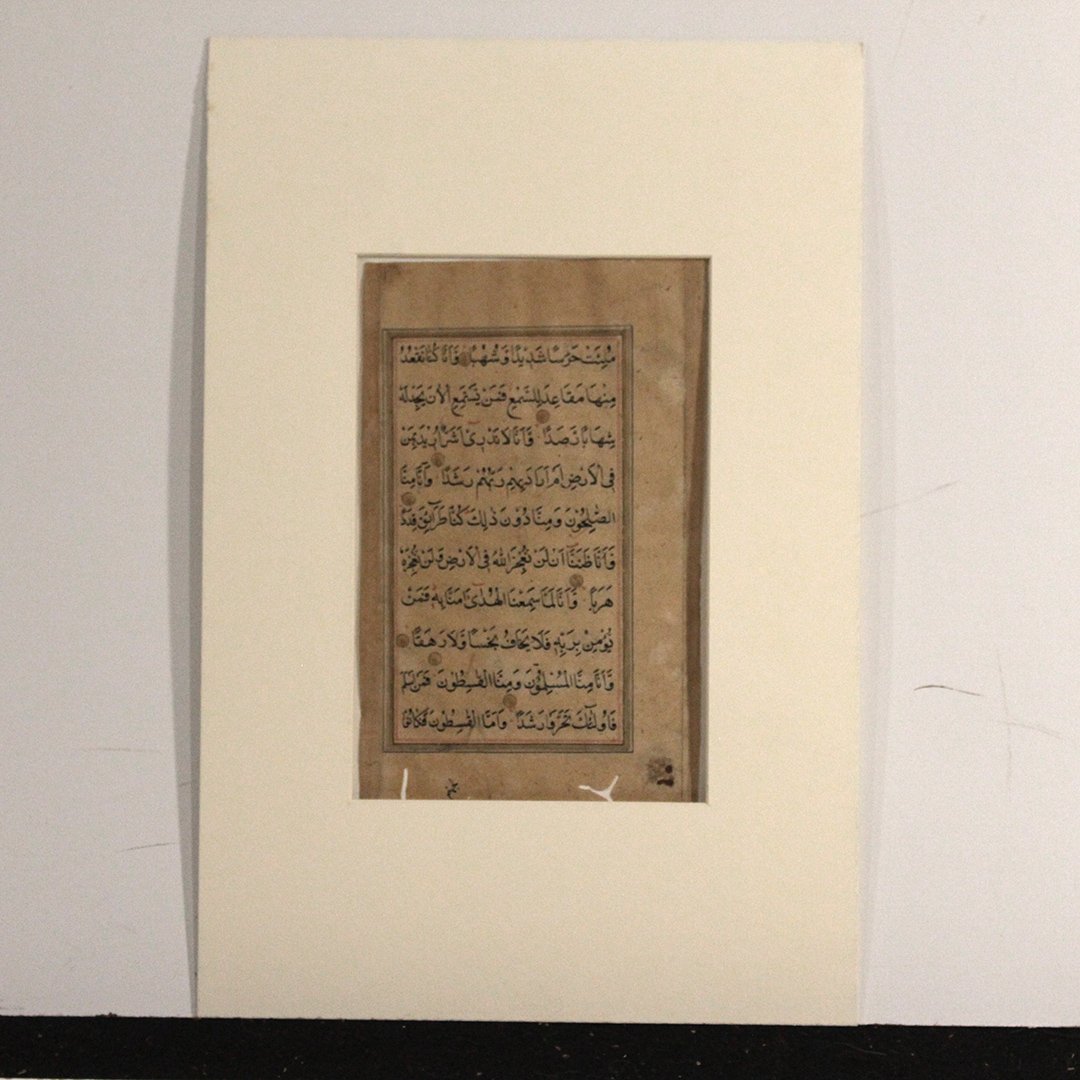 مُلِئَتْ حَرَسًا شَدِيدًا وَشُهُبًا وَاَنَّا كُنَّا نَقْعُدُ
مِنْهَا مَقَاعِدَ لِلسَّمْعِ فَمَنْ يَسْتَمِعِ الْاٰنَ يَجِدْ لَهُ
شِهَابًا رَصَدًا وَاَنَّا لَا نَدْرِىٓ اَشَرٌّ اُرِيدَ بِمَنْ
فِى الْاَرْضِ اَمْ اَرَادَ بِهِمْ رَبُّهُمْ رَشَدًا وَاَنَّا مِنَّا
الصّٰلِحُونَ وَمِنَّا دُونَ ذٰلِكَ كُنَّا طَرَآئِقَ قِدَدًا
وَاَنَّا ظَنَنَّآ اَنْ لَنْ نُعْجِزَ اللّٰهَ فِى الْاَرْضِ وَلَنْ نُعْجِزَهُ
هَرَبًا وَاَنَّا لَمَّا سَمِعْنَا الْهُدٰىٓ اٰمَنَّا بِهٖ فَمَنْ
يُؤْمِنْ بِرَبِّهٖ فَلَا يَخَافُ بَخْسًا وَلَا رَهَقًا
وَاَنَّا مِنَّا الْمُسْلِمُونَ وَمِنَّا الْقٰسِطُونَ فَمَنْ اَسْلَمَ
فَاُولٰٓئِكَ تَحَرَّوْا رَشَدًا وَاَمَّا الْقٰسِطُونَ فَكَانُوا